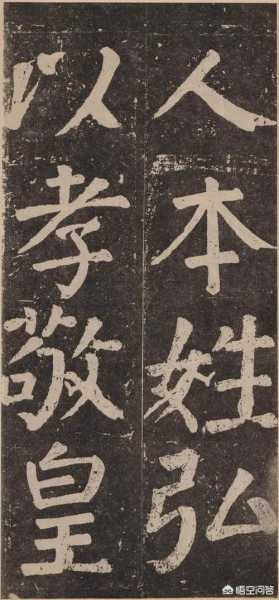 人本姓弘
以孝敬皇
悟空问答